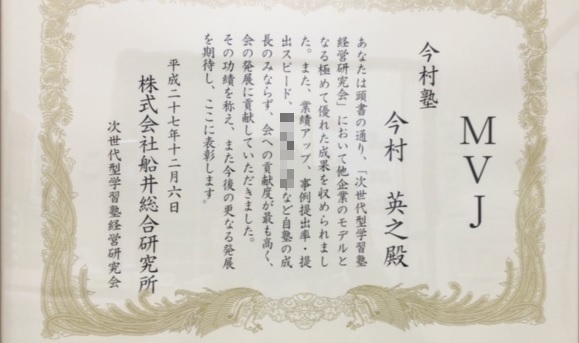 MVJ
今村塾
今村 英之殿
あなたは頭書の通り、「次世代型学習塾
経営研究会」において他企業のモデルと
なる極めて優れた成果を収められまし
た。また、業績アップ、事例提出率・提
出スピード、など自塾の成
長のみならず、会への貢献度が最も高く、
会の発展に貢献していただきました。
その功績を称え、また今後の更なる発展
を期待し、ここに表彰します。
平成二十七年十二月六日
株式会社船井総合研究所
次世代型学習塾経営研究会